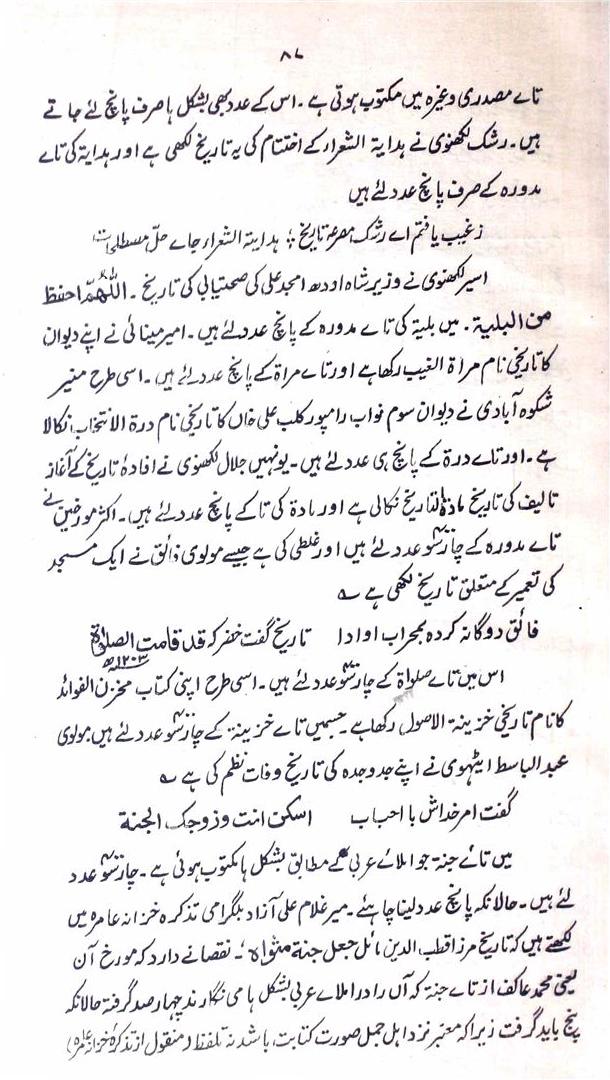 ۸۷
تاے مصدری وغیرہ میں مکتوب ہوتی ہے۔ اس کے عدد بھی بشکل ہا صرف پانچ لئے جاتے
ہیں۔ رشک لکھنوی نے ہدایۃ الشعراء کے اختتام کی یہ تاریخ لکھی ہے اور ہدایۃ کی تاے
مدورہ کے صرف پانچ عدد لئے ہیں
زغیب یافتم اے رشک مصرعۂ تاریخ ؛ ہدایۃ الشعراء جاے حلّ مصطلحات
اسیر لکھنوی نے وزیر شاہ اودھ امجد علی کی صحتیابی کی تاریخ۔ اللّٰھمّ احفظ
من البلیۃ۔ میں بلیۃ کی تاے مدورہ کے پانچ عدد لئے ہیں۔ امیر مینائی نے اپنے دیوان
کا تاریخی نام مراۃ الغیب رکھا ہے اور تاے مراۃ کے پانچ عدد لئے ہیں۔ اسی طرح منیر
شکوہ آبادی نے دیوان سوم نواب رامپور کلب علی خاں کا تاریخی نام درۃ الانتخاب نکالا
ہے۔ اور تاے درۃ کے پانچ ہی عدد لئے ہیں۔ یونہیں جلال لکھنوی نے افادۂ تاریخ کے آغاز
تالیف کی تاریخ مادۃ لتاریخ نکالی ہے اور مادۃ کی تا کے پانچ عدد لئے ہیں۔ اکثر مورخین نے
تاے مدورہ کے چار سو عدد لئے ہیں اور غلطی کی ہے جیسے مولوی فائق نے ایک مسجد
کی تعمیر کے متعلق تاریخ لکھی ہے ؎
فائق دوگانہ کردہ بمحراب او ادا تاریخ گفت خضر کہ قد قامت الصلوٰۃ
۱۲۰۳ھ
اس میں تاے صلوٰۃ کے چار سو عدد لئے ہیں۔ اسی طرح اپنی کتاب مخزن الفوائد
کا نام تاریخی خزینۃ الاصول رکھا ہے۔ جسمیں تاے خزینۃ کے چار سو عدد لئے ہیں مولوی
عبد الباسط ایٹھوی نے اپنے جد و جدہ کی تاریخ وفات نظم کی ہے ؎
گفت امر خداش با احباب اسکن انت وزوجک الجنۃ
میں تائے جنۃ جو املائے عربی کے مطابق بشکل ہا مکتوب ہوئی ہے۔ چار سو عدد
لئے ہیں۔ حالانکہ پانچ عدد لینا چاہئے۔ میر غلام علی آزاد بلگرامی تذکرہ خزانہ عامرہ میں
لکھتے ہیں کہ تاریخ مرزا قطب الدین مائل جعل جنۃ مثواہ ؛۔ نقصانے دارد کہ مورخ آن
یعنی محمد عاکف از تاے جنۃ کہ آں را در املاے عربی بشکل ہا می نگارند چہار صد گرفتہ حالانکہ
پنج باید گرفت زیرا کہ معتبر نزد اہل جمل صورت کتابت باشد نہ تلفظ (منقول از تذکرۂ خزانہ عامرہ)